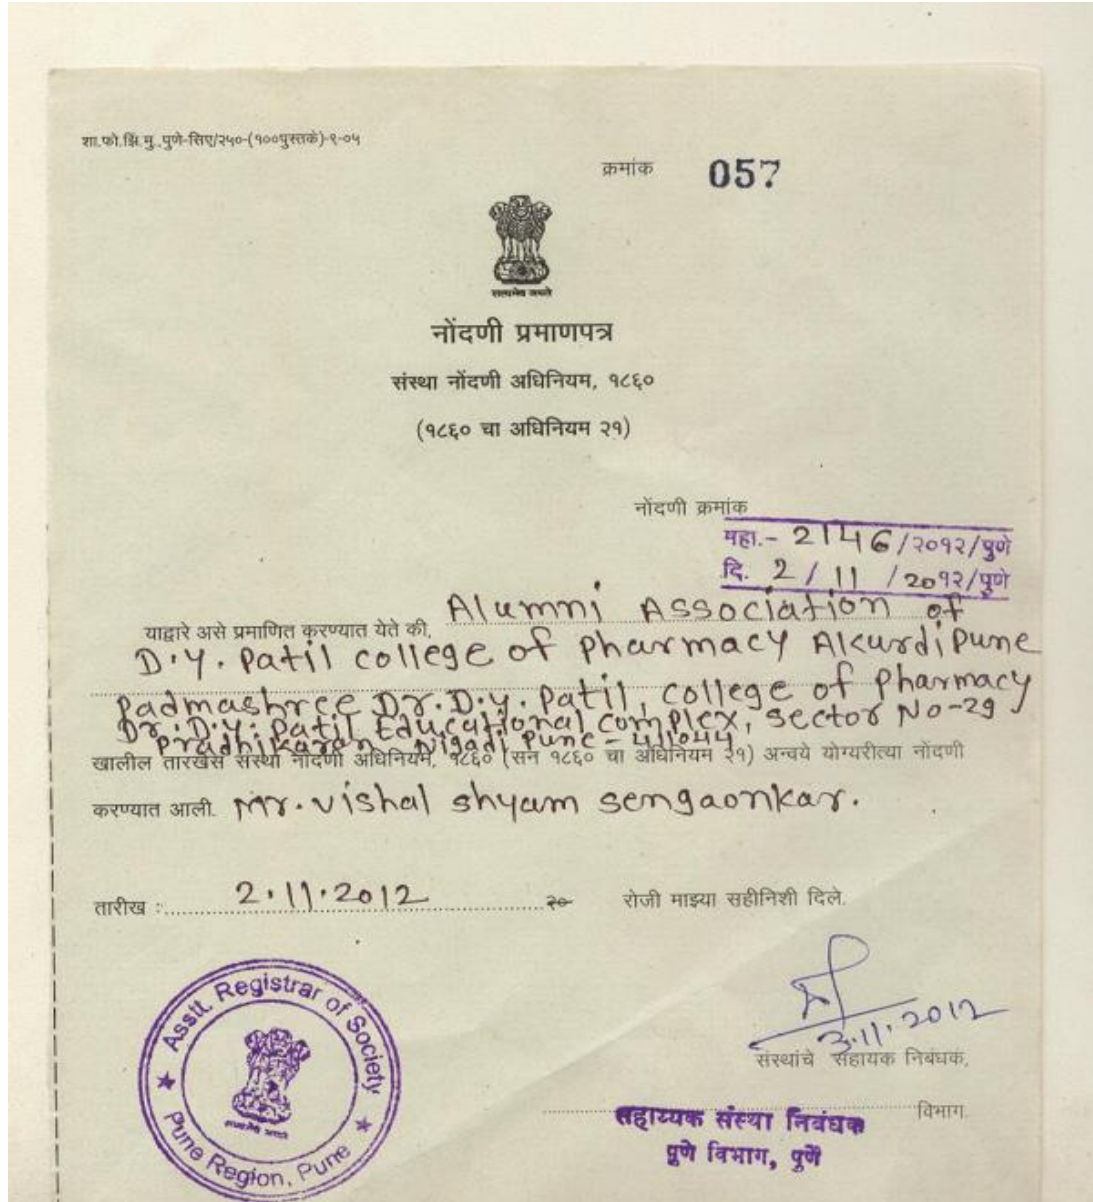 शा.फो.झिं.मु.,पुणे-सिए/२५०-(१००पुस्तके)-९-०५
क्रमांक 057
सत्यमेव जयते
नोंदणी प्रमाणपत्र
संस्था नोंदणी अधिनियम, १८६०
(१८६० चा अधिनियम २१)
नोंदणी क्रमांक
महा.- 2146/२०१२/पुणे
दि. 2/11/२०१२/पुणे
याद्वारे असे प्रमाणित करण्यात येते की, Alumni Association of
D.Y. Patil college of Pharmacy Akurdi Pune
Padmashree Dr. D.Y. Patil, college of Pharmacy
Dr. D.Y. Patil Educational complex, sector No-29
Pradhikaran Nigadi Pune - 411044
खालील तारखेस संस्था नोंदणी अधिनियम, १८६० (सन १८६० चा अधिनियम २१) अन्वये योग्यरीत्या नोंदणी
करण्यात आली. Mr. Vishal Shyam Sengaonkar.
तारीख : 2.11.2012 २० रोजी माझ्या सहीनिशी दिले.
Asstt. Registrar of Society
Pune Region, Pune
3.11.2012
संस्थांचे सहायक निबंधक,
विभाग.
सहाय्यक संस्था निबंधक
पुणे विभाग, पुणे